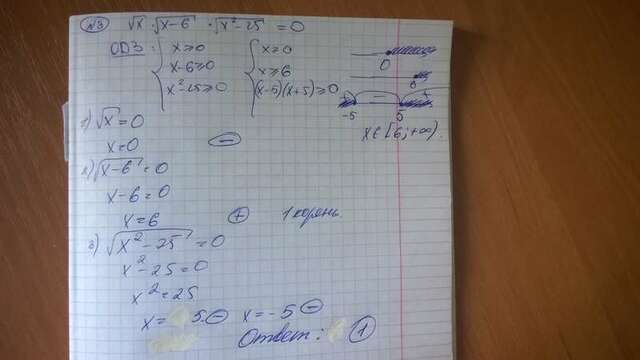 №3 √x · √x-6 · √x²-25 = 0
ОДЗ: { x ≥ 0 { x ≥ 0 0
x-6 ≥ 0 x ≥ 6 6
x²-25 ≥ 0 (x-5)(x+5) ≥ 0 + - +
-5 5
x ∈ [6; +∞).
1) √x = 0
x = 0 ⊖
2) √x-6 = 0
x-6 = 0
x = 6 ⊕ 1 корень
3) √x²-25 = 0
x²-25 = 0
x² = 25
x = 5 ⊖ x = -5 ⊖
Ответ: 1